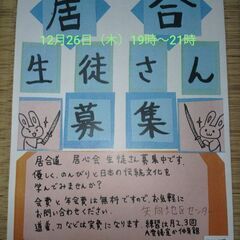 居合
12月26日（木）19時〜21時
生徒さん
募集
居合道 居心会 生徒さん募集中です。
優しく、のんびりと日本の伝統文化を
学んでみませんか?
会費と年会費は無料ですので、お気軽に
お問い合わせください。
矢向地区センター
道着、刀などは実費になります。練習は月2、3回